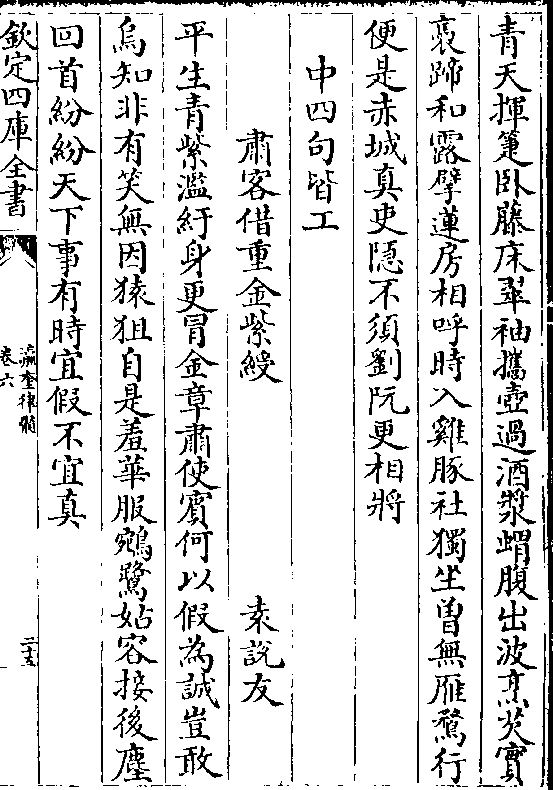 青天揮箑卧藤床翠袖攜壺過酒漿蝟腹出波烹芡實
裛蹄和露擘蓮房相呼時入雞豚社獨坐曽無雁鶩行
便是赤城真吏隠不須劉阮更相將
中四句皆工
肅客借重金紫綬
袁說友
平生青紫濫紆身更冒金章肅使賓何以假為誠豈敢
烏知非有笑無因猿狙自是羞華服鵷鷺姑容接後塵
回首紛紛天下事有時宜假不宜真
欽定四庫全書
瀛奎律髓
卷六
二十五